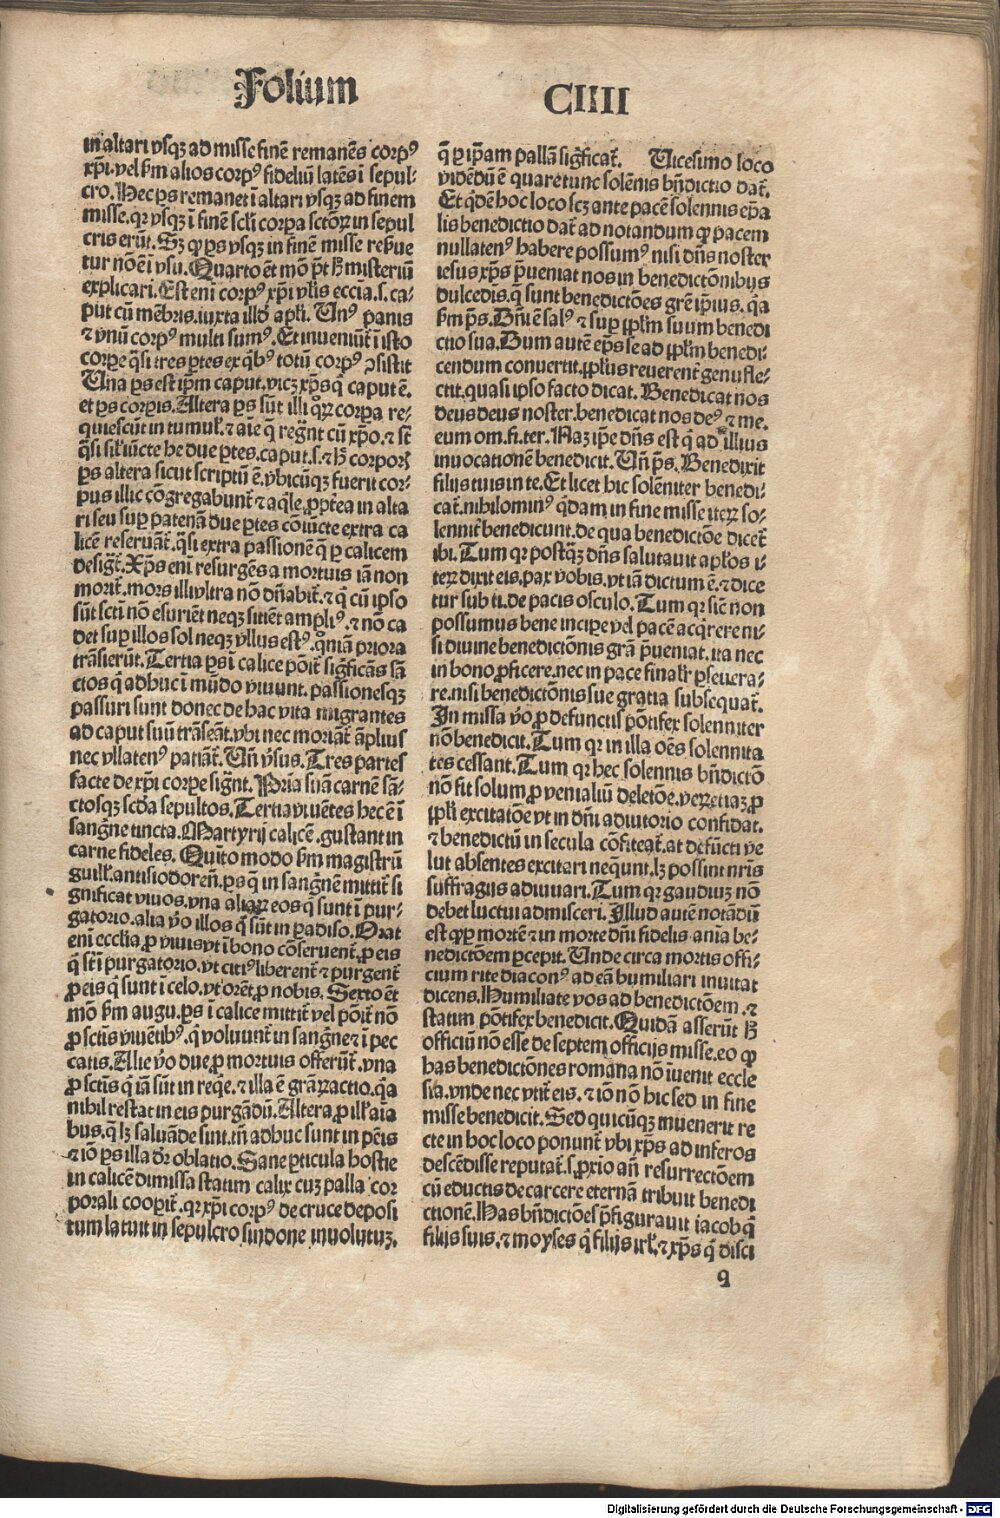 Folium
CIIII
in altari vsqꝫ ad misse finē remanēs corpꝰ
xp̄i. vel ẜm alios corpꝰ fideliū latēs ī sepul⸗
cro. Hec ꝑs remanet ī altari vsqꝫ ad finem
misse. qꝛ vsqꝫ ī finē scl̄i corpa sctōꝝ in sepul
cris erūt. Sꝫ ꝙ ꝑs vsqꝫ in finē misse res̄ue
tur nō ē ī vsu. Quarto ēt mō p̄t hͦ misteriū
explicari. Est eni corpꝰ xp̄i vl̓is eccīa .s. ca⸗
put cū mēbris. iuxta illd̓ apl̓i. Unꝰ panis
⁊ vnū corpꝰ multi sumꝰ. Et inueniūt̄ ī isto
corpe q̄si tres ꝑtes ex qͥbꝰ totū corpꝰ ꝯsistit
Una ꝑs est ip̄m caput. vicꝫ xp̄s qͥ caput ē.
et ꝑs corpis. Altera ꝑs sūt illi quoꝝ corpa re⸗
quiescūt in tumul̓. ⁊ aīe q̄ regn̄t cū xp̄o. ⁊ st̄
q̄si sil̓ iūcte he due ꝑtes. caput .s. ⁊ hͦ corporl̓
ꝑs altera sicut scriptū ē. vbicūqꝫ fuerit cor⸗
pus illic cōgregabunt̄ ⁊ aq̄le. ꝓpt̄ea in alta
ri seu suꝑ patenā due ꝑtes cōiūcte extra ca
licē reseruāt̄. q̄si extra passionē q̄ ꝑ calicem
desigt̄. Xp̄s eni resurgēs a mortuis iā non
morit̄. mors illi vltra nō dn̄abit̄. ⁊ qͥ cū ipso
sūt scti nō esuriēt neqꝫ sitiēt ampliꝰ. ⁊ nō ca
det suꝑ illos sol neqꝫ vllus estꝰ. qm̄iā priora
trāsierūt. Tertia ꝑs ī calice pōit̄ sigficās sā
ctos qͥ adhuc ī mūdo viuunt. passionesqꝫ
passuri sunt donec de hac vita migrantes
ad caput suū trāseāt. vbi nec moriāt̄ āplius
nec vllatenꝰ patiāt̄. Un̄ v̓sus. Tres partes
facte de xp̄i corpe sign̄t. Pria suā carnē sā⸗
ctosqꝫ scd̓a sepultos. Tertia viuētes hec ē ī
sangͥne tincta. Martyrij calicē. gustant in
carne fideles. Quīto modo ẜm magistrū
guill̓. antisiodoreñ. ꝑs q̄ in sangͥnē mittit̄ si
gnificat viuos. vna aliaꝝ eos qͥ sunt ī pur⸗
gatorio. alia v̓o illos qͥ sūt in paradiso. Orat
eni ecclīa ꝓ viuis vt ī bono cōseruent̄. ꝓ eis
qͥ st̄ ī purgatorio. vt citiꝰ liberent̄ ⁊ purgent̄
ꝓ eis qͥ sunt ī celo. vt orēt ꝓ nobis. Sexto ēt
mō ẜm augu. ꝑs ī calice mittit̄ vel pōit̄ nō
ꝓ sctīs viuētibꝰ. qͥ voluunt̄ in sangͥne ⁊ ī pec
catis. Alie v̓o due ꝓ mortuis offerūt̄. vna
ꝓ sctīs qͥ iā sūt in reqͥe. ⁊ illa ē grāꝝ actio. qꝛ
nihil restat in eis purgādū. Altera ꝓ ill̓ aīa
bus. q̄ lꝫ saluāde sint. tn̄ adhuc sunt in pēis
⁊ iō ꝑs illa dr̄ oblatio. Sane ꝑticula hostie
in calicē dimissa statim calix cuꝫ palla cor
porali cooꝑit̄. qꝛ xp̄i corpꝰ de cruce deposi
tum latuit in sepulcro sindone inuolutuꝫ.
q̄ ꝑ ip̄am pallā sigficat̄. Uicesimo loco
vidēdū ē quare tunc solēnis bn̄dictio dat̄.
Et qͥdē hoc loco scꝫ ante pacē solennis ep̄a
lis benedictio dat̄ ad notandum ꝙ pacem
nullatenꝰ habere possumꝰ nisi dn̄s noster
iesus xp̄s p̄ueniat nos in benedictōnibus
dulcedīs. q̄ sunt benedictōes grē ip̄ius. qꝛ
ẜm ꝓs. Dn̄i ē salꝰ ⁊ suꝑ ipl̓m suum benedi
ctio sua. Dum autē ep̄s se ad ipl̓m benedi⸗
cendum conuertit. ipl̓us reuerent̄ genufle⸗
ctit. quasi ipso facto dicat. Benedicat nos
deus deus noster. benedicat nos deꝰ ⁊ me.
eum om. fi. ter. Naꝫ ip̄e dn̄s est qͥ ad illius
inuocationē benedicit. Un̄ ꝓs. Benedixit
filijs tuis in te. Et licet hic solēniter benedi⸗
cat̄. nihilominꝰ qͥdam in fine misse iteꝝ so⸗
lennit̄ benedicunt. de qua benedictōe dicet̄
ibi. Tum qꝛ postqꝫ dn̄s salutauit aplōs i⸗
teꝝ dixit eis. pax vobis. vt iā dictum ē. ⁊ dice
tur sub ti. de pacis osculo. Tum qꝛ sic̄ non
possumus bene incipe vel pacē acqͥrere ni⸗
si diuine benedictōnis grā p̄ueniat. ita nec
in bono ꝓficere. nec in pace finalr̄ ꝑseuera⸗
re. nisi benedictōnis sue gratia subsequat̄.
In missa v̓o ꝓ defunctis pōtifex solenniter
nō benedicit. Tum qꝛ in illa oēs solennita
tes cessant. Tum qꝛ hec solennis bn̄dictō
nō fit solum ꝓ venialiū deletōe. veꝝetiaꝫ ꝓ
ipl̓i excitatōe vt in dn̄i adiutorio confidat.
⁊ benedictū in secula cōfiteat̄. at defūcti ve
lut absentes excitari neqͥunt. lꝫ possint nr̄is
suffragijs adiuuari. Tum qꝛ gaudiuꝫ nō
debet luctui admisceri. Illud autē notādū
est ꝙ ꝑ mortē ⁊ in morte dn̄i fidelis anīa be⸗
nedictōem ꝑcepit. Unde circa mortis offi⸗
cium rite diaconꝰ ad eā humiliari inuitat
dicens. Humiliate vos ad benedictōem. ⁊
statim pōtifex benedicit. Quidā asserūt hͦ
officiū nō esse de septem officijs misse. eo ꝙ
has benedictōnes romana nō iuenit eccle
sia. vnde nec vtit̄ eis. ⁊ iō nō hic sed in fine
misse benedicit. Sed quicūqꝫ inuenerit re
cte in hoc loco ponunt̄ vbi xp̄s ad inferos
descēdisse reputat̄. s. ꝓxio an̄ resurrectōem
cū eductis de carcere eternā tribuit benedi
ctionē. Has bn̄dictōes p̄figurauit iacob qͥ
filijs suis. ⁊ moyses qͥ filijs isrl̓. ⁊ xp̄s qͥ disci
q
Digitalisierung gefördert durch die Deutsche Forschungsgemeinschaft - DFG